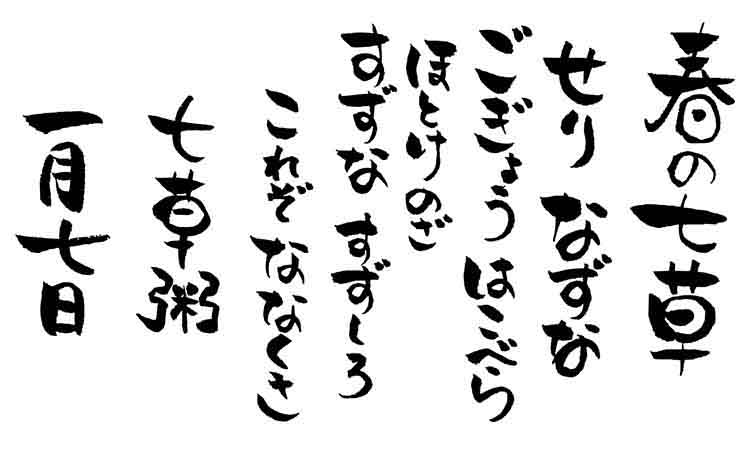 春の七草
せり なずな
ごぎょう はこべら
ほとけのざ
すずな すずしろ
これぞ ななくさ
七草粥
一月七日